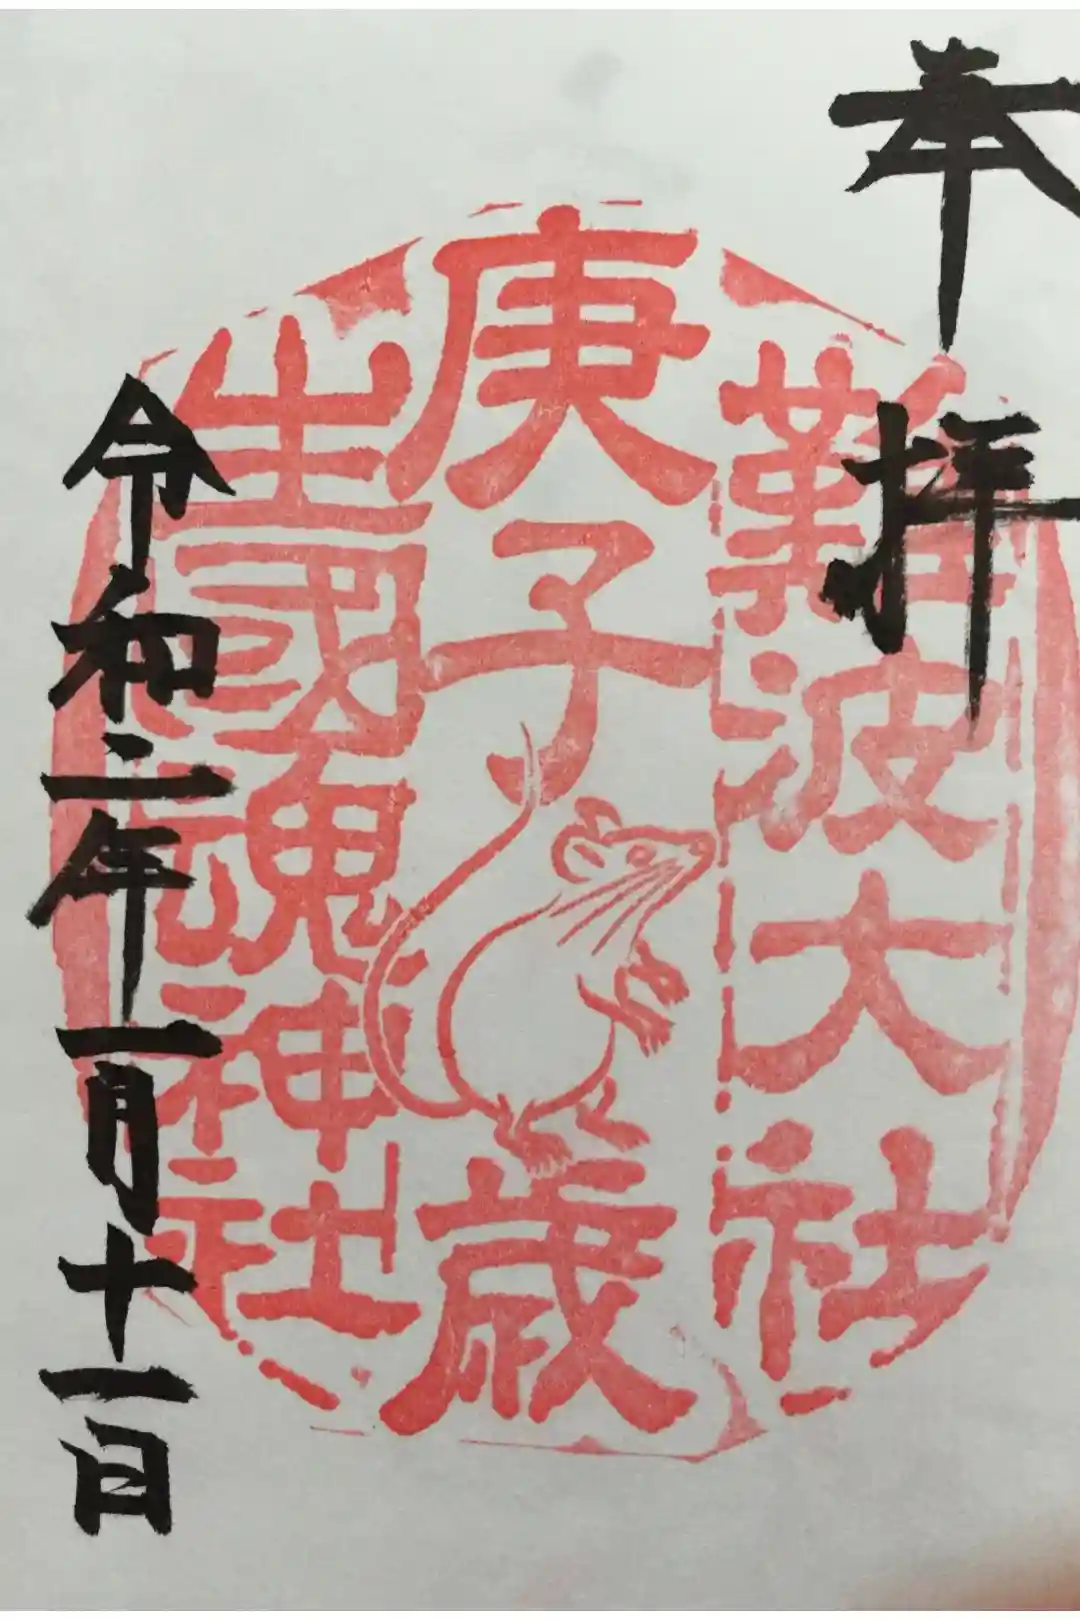 奉拝
難波大社
庚子歳
生國魂神社
令和二年一月十一日